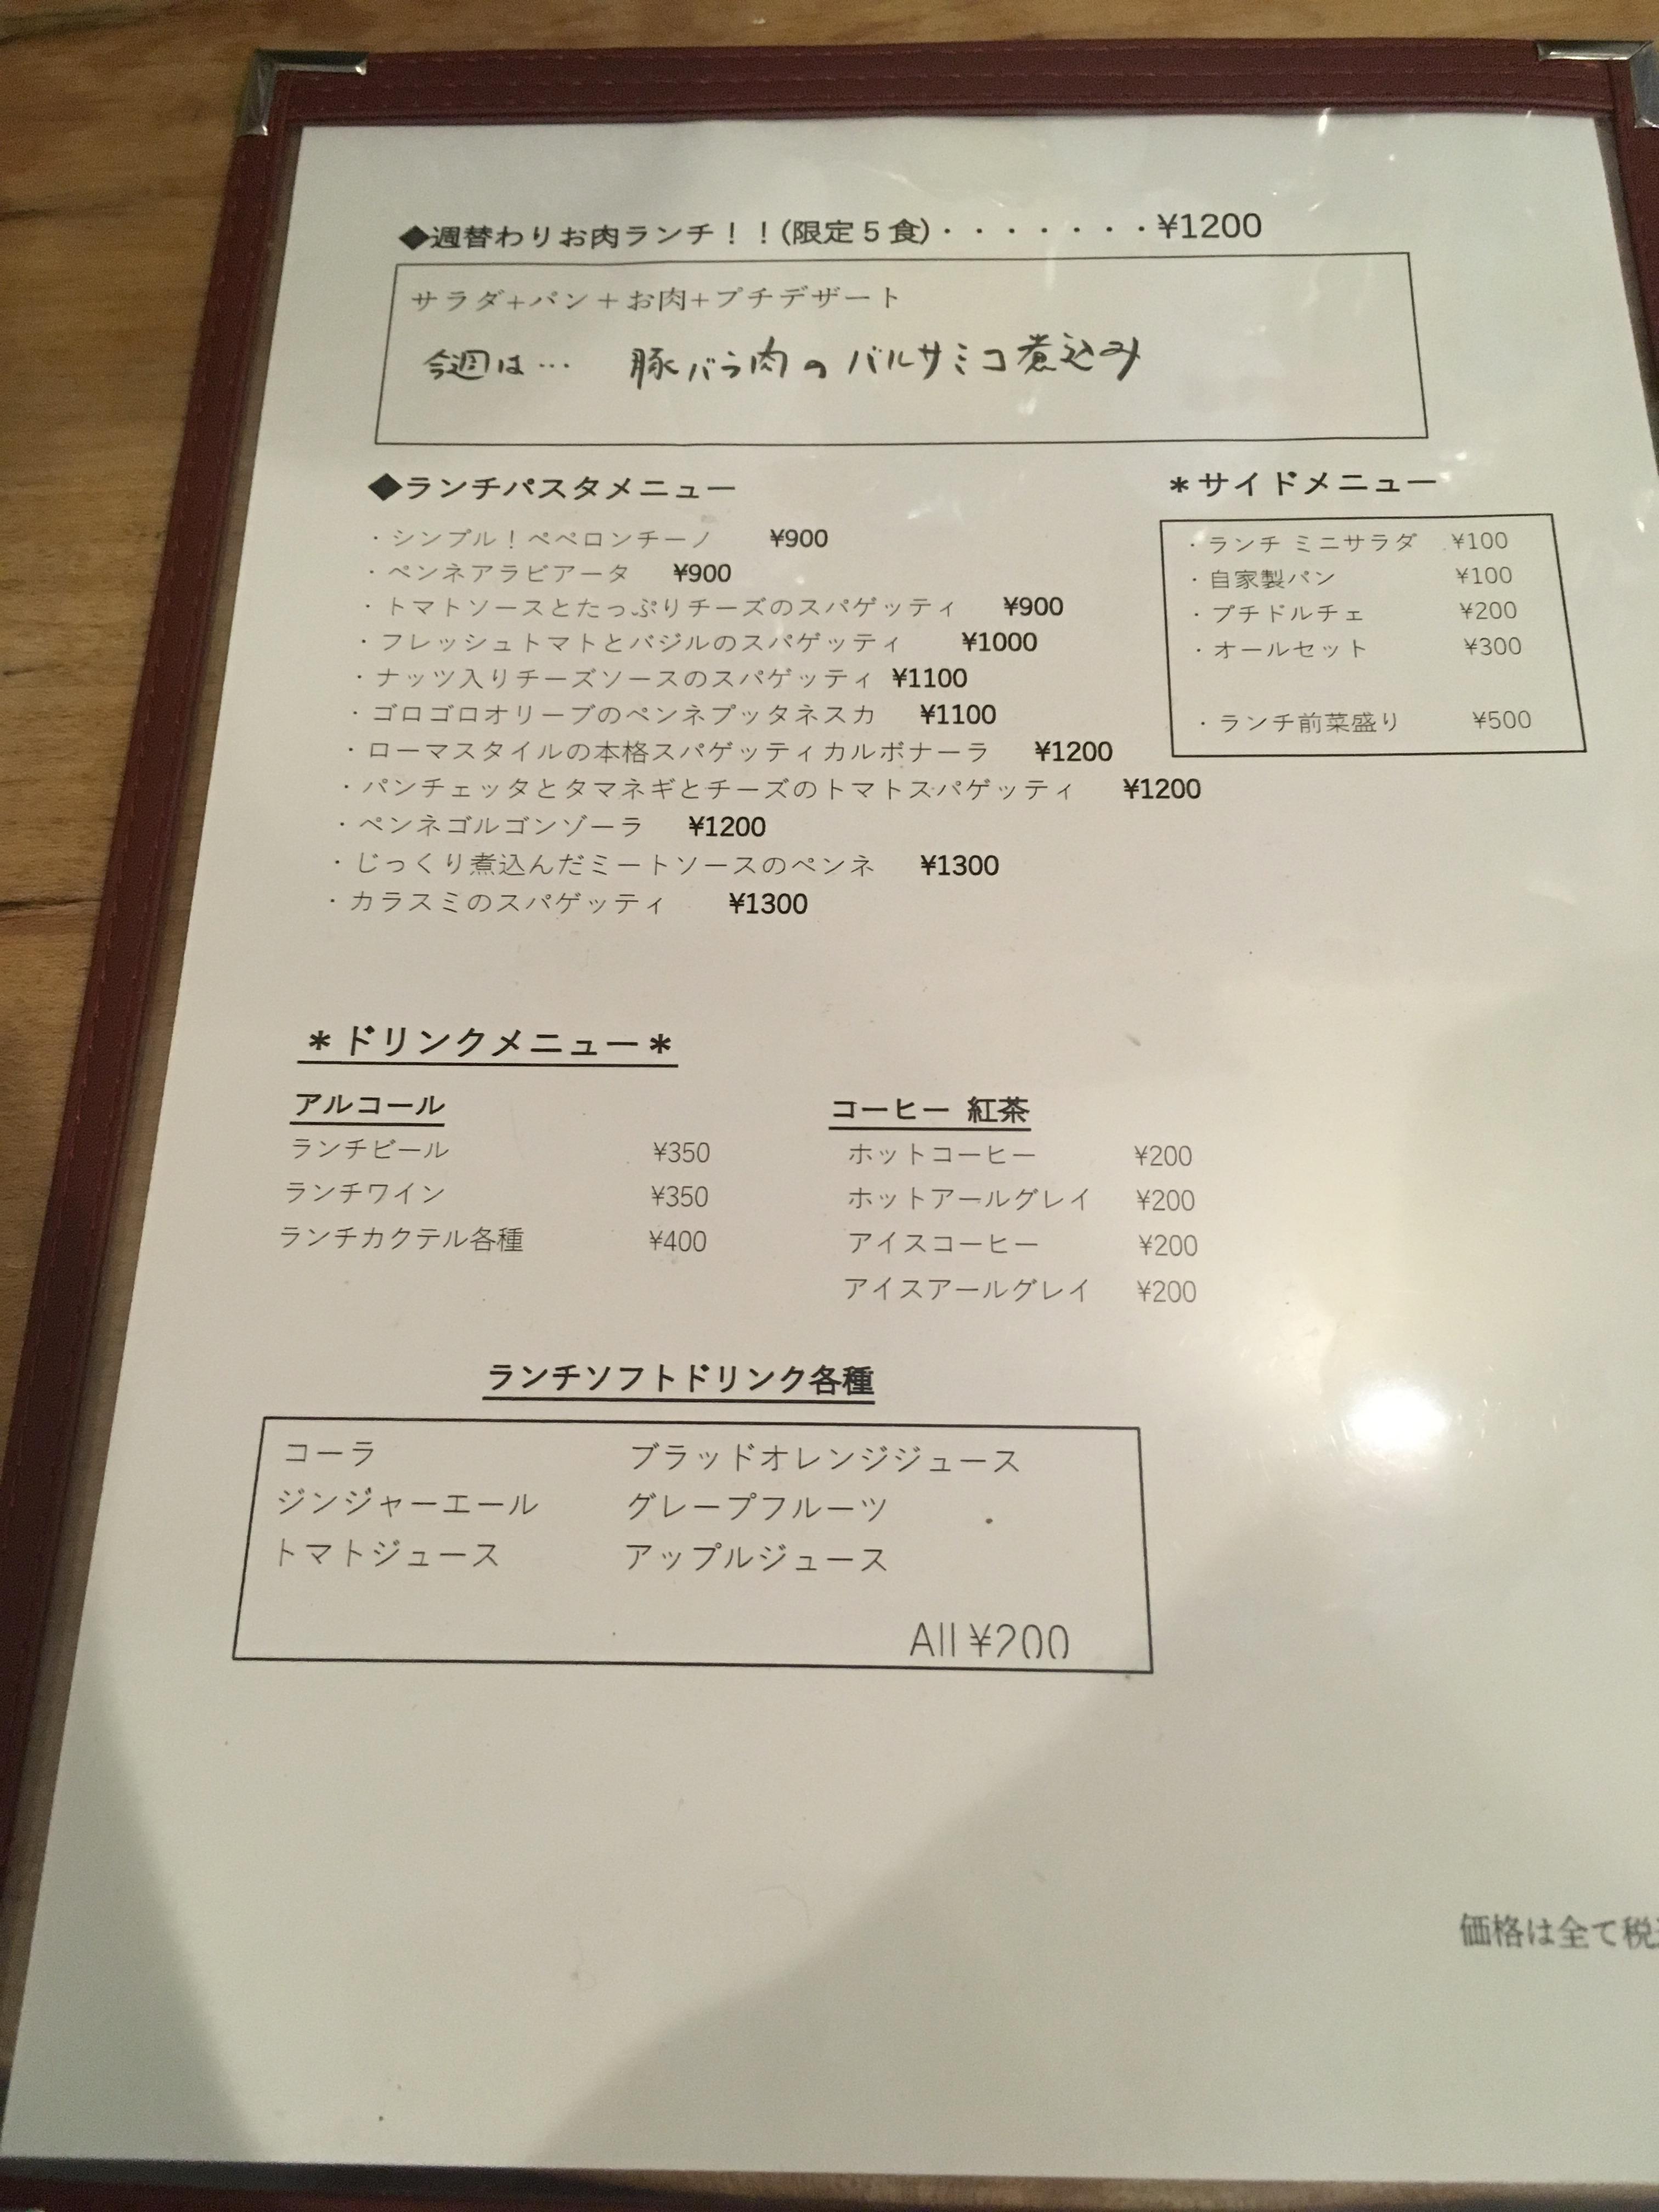 ◆週替わりお肉ランチ！！(限定5食)・・・・・・・¥1200
サラダ+パン+お肉+プチデザート
今週は… 豚バラ肉のバルサミコ煮込み
◆ランチパスタメニュー
・シンプル！ペペロンチーノ ¥900
・ペンネアラビアータ ¥900
・トマトソースとたっぷりチーズのスパゲッティ ¥900
・フレッシュトマトとバジルのスパゲッティ ¥1000
・ナッツ入りチーズソースのスパゲッティ ¥1100
・ゴロゴロオリーブのペンネプッタネスカ ¥1100
・ローマスタイルの本格スパゲッティカルボナーラ ¥1200
・パンチェッタとタマネギとチーズのトマトスパゲッティ ¥1200
・ペンネゴルゴンゾーラ ¥1200
・じっくり煮込んだミートソースのペンネ ¥1300
・カラスミのスパゲッティ ¥1300
＊サイドメニュー
・ランチ ミニサラダ ¥100
・自家製パン ¥100
・プチドルチェ ¥200
・オールセット ¥300
・ランチ前菜盛り ¥500
＊ドリンクメニュー＊
アルコール
ランチビール ¥350
ランチワイン ¥350
ランチカクテル各種 ¥400
コーヒー 紅茶
ホットコーヒー ¥200
ホットアールグレイ ¥200
アイスコーヒー ¥200
アイスアールグレイ ¥200
ランチソフトドリンク各種
コーラ ブラッドオレンジジュース
ジンジャーエール グレープフルーツ
トマトジュース アップルジュース
All ¥200
価格は全て税